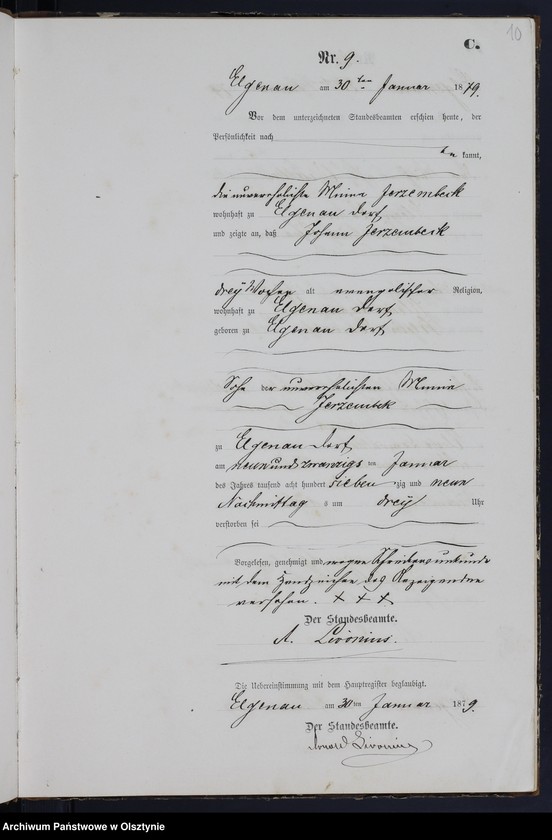 10
C.
Nr. 9.
Elgenau am 30ten Januar 1879.
Vor dem unterzeichneten Standesbeamten erschien heute, der
Persönlichkeit nach
kannt,
die unverehelichte Jerzembeck
wohnhaft zu Elgenau Dorf
und zeigte an, daß Johann Jerzembeck
drey Wochen alt evangelischer Religion,
wohnhaft zu Elgenau Dorf
geboren zu Elgenau Dorf
Sohn der unverehelichten
Jerzembek
zu Elgenau Dorf
am neunundzwanzigsten Januar
des Jahres tausend acht hundert siebenzig und neun
Nachmittags um drey Uhr
verstorben sei
Vorgelesen, genehmigt und wegen Schreibensunkunde
mit dem Handzeichen des Anzeigenden
versehen. + + +
Der Standesbeamte.
A. Livonius.
Die Uebereinstimmung mit dem Hauptregister beglaubigt.
Elgenau am 30ten Januar 1879.
Der Standesbeamte.
Livonius
Archiwum Państwowe w Olsztynie